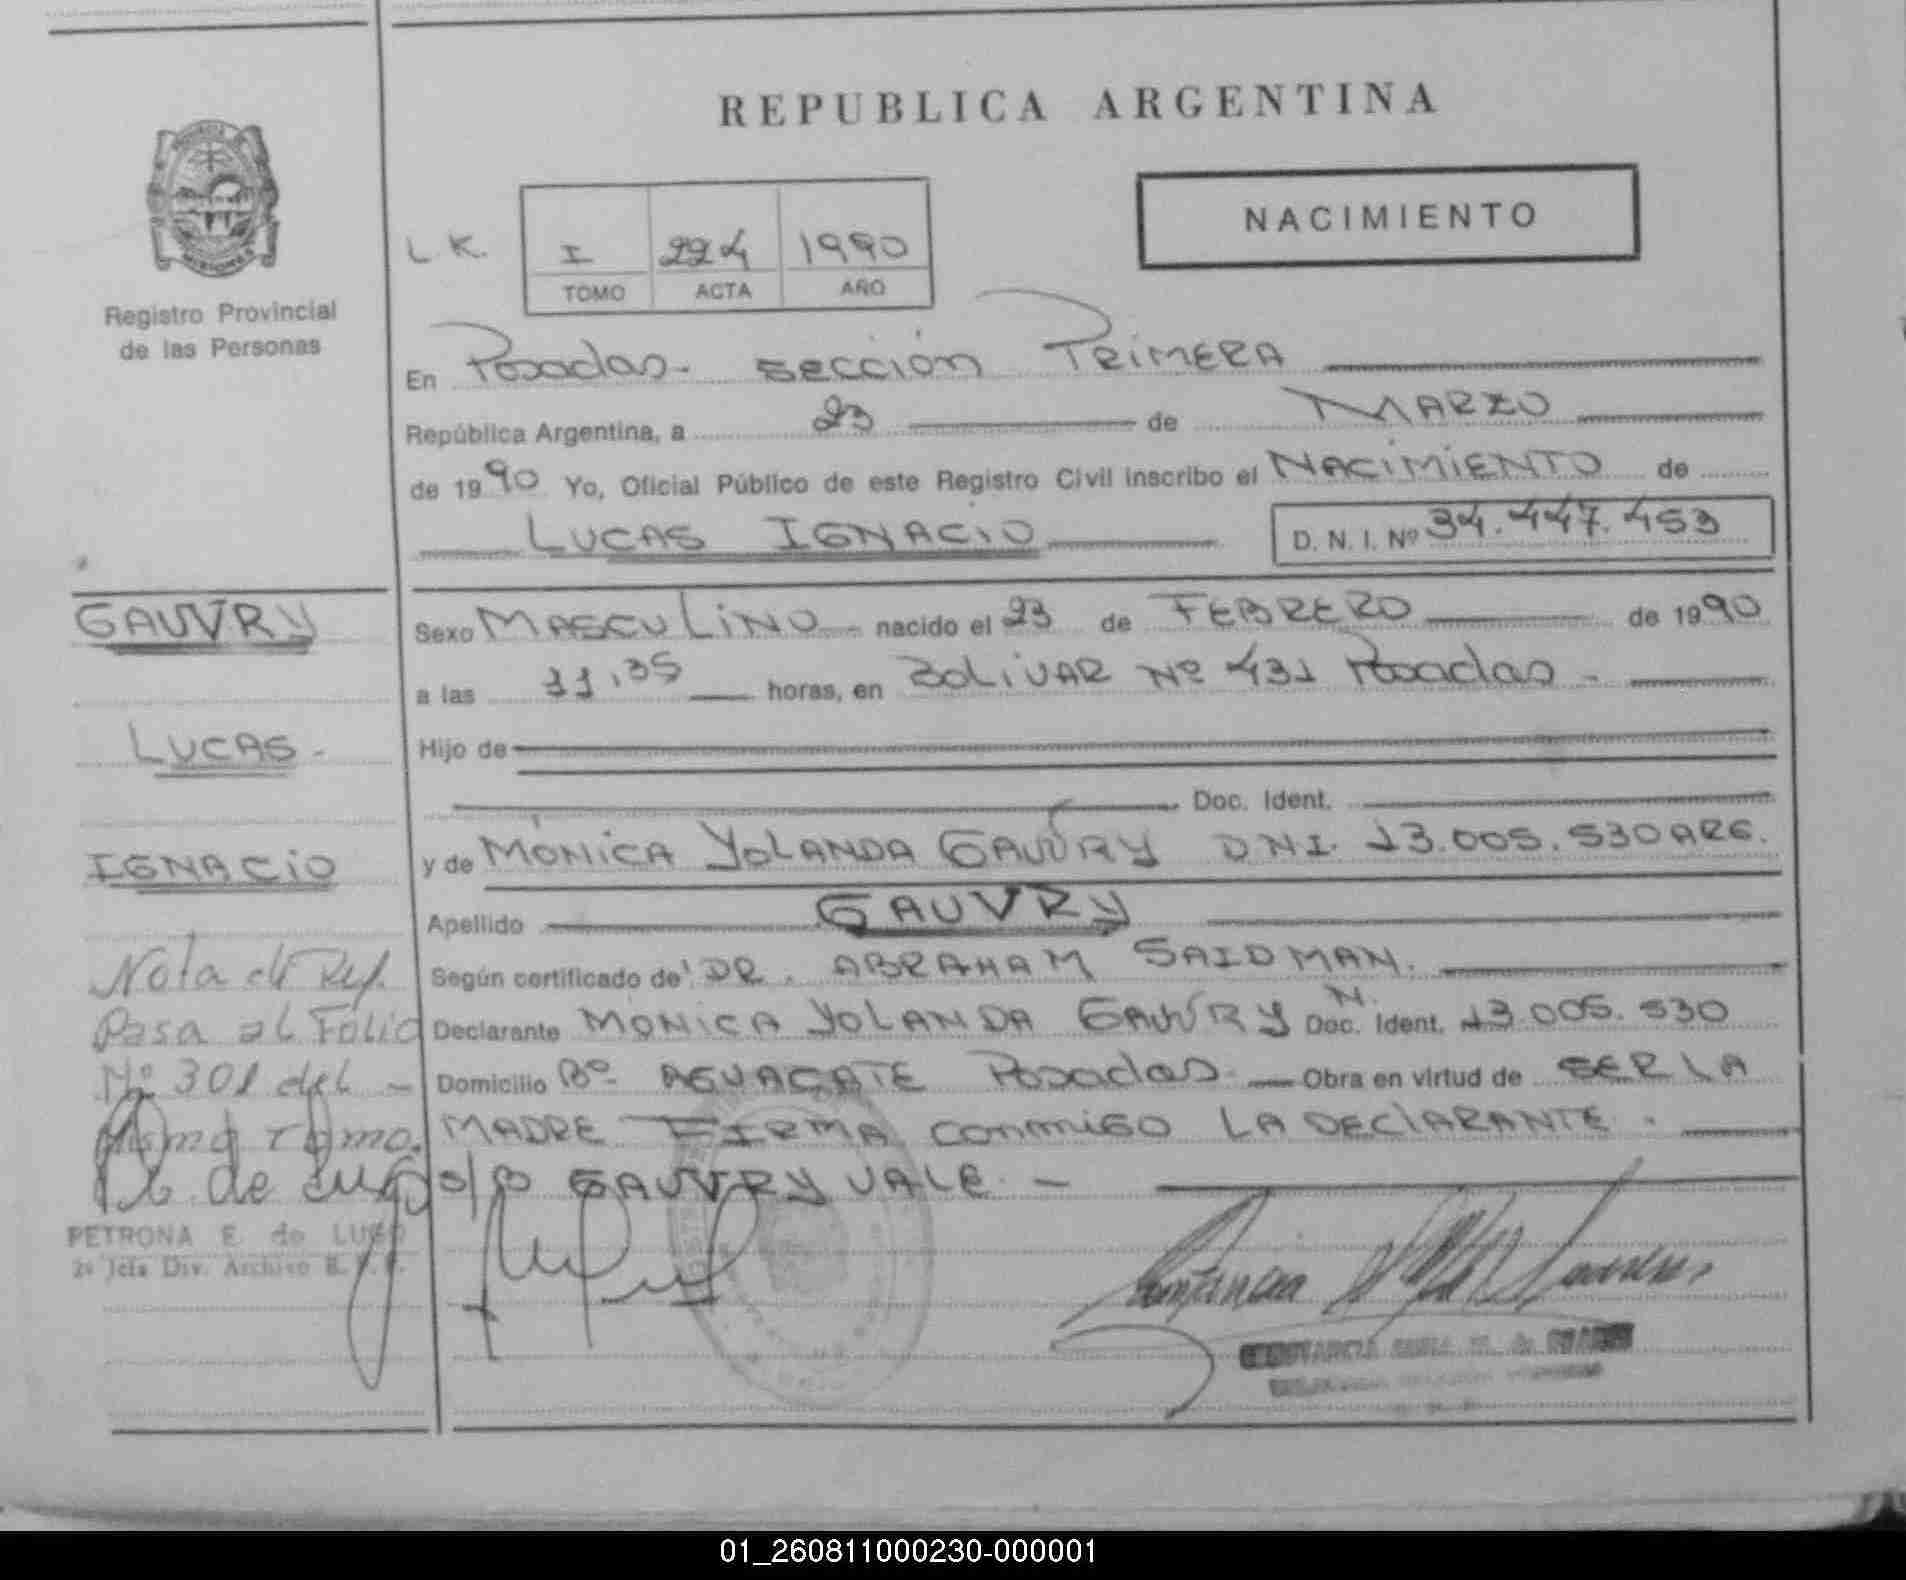 REPUBLICA ARGENTINA
NACIMIENTO
L.K.
I 224 1990
TOMO ACTA AÑO
Registro Provincial
de las Personas
En Posadas. sección PRIMERA
República Argentina, a 23 de MARZO
de 1990 Yo, Oficial Público de este Registro Civil inscribo el NACIMIENTO de
LUCAS IGNACIO D. N. I. Nº 34.447.453
GAUVRY
LUCAS.
IGNACIO
Sexo MASCULINO nacido el 23 de FEBRERO de 1990
a las 11,35 horas, en BOLIVAR Nº 431 Posadas -
Hijo de
Doc. Ident.
y de MÓNICA YOLANDA GAUVRY DNI. 13.005.530 ARG.
Apellido GAUVRY
Según certificado de DR. ABRAHAM SAIDMAN.
Declarante MONICA YOLANDA GAUVRY Doc. N. Ident. 13.005.530
Domicilio Bº AGUACATE Posadas. Obra en virtud de SER LA
MADRE FIRMA conmigo LA DECLARANTE.
s/r GAUVRY VALE. -
Nota de Ref.
Pasa al Folio
Nº 301 del -
mismo Tomo.
de Lugo
PETRONA E. de LUGO
2ª Jefa Div. Archivo R.P.P.
01_260811000230-000001